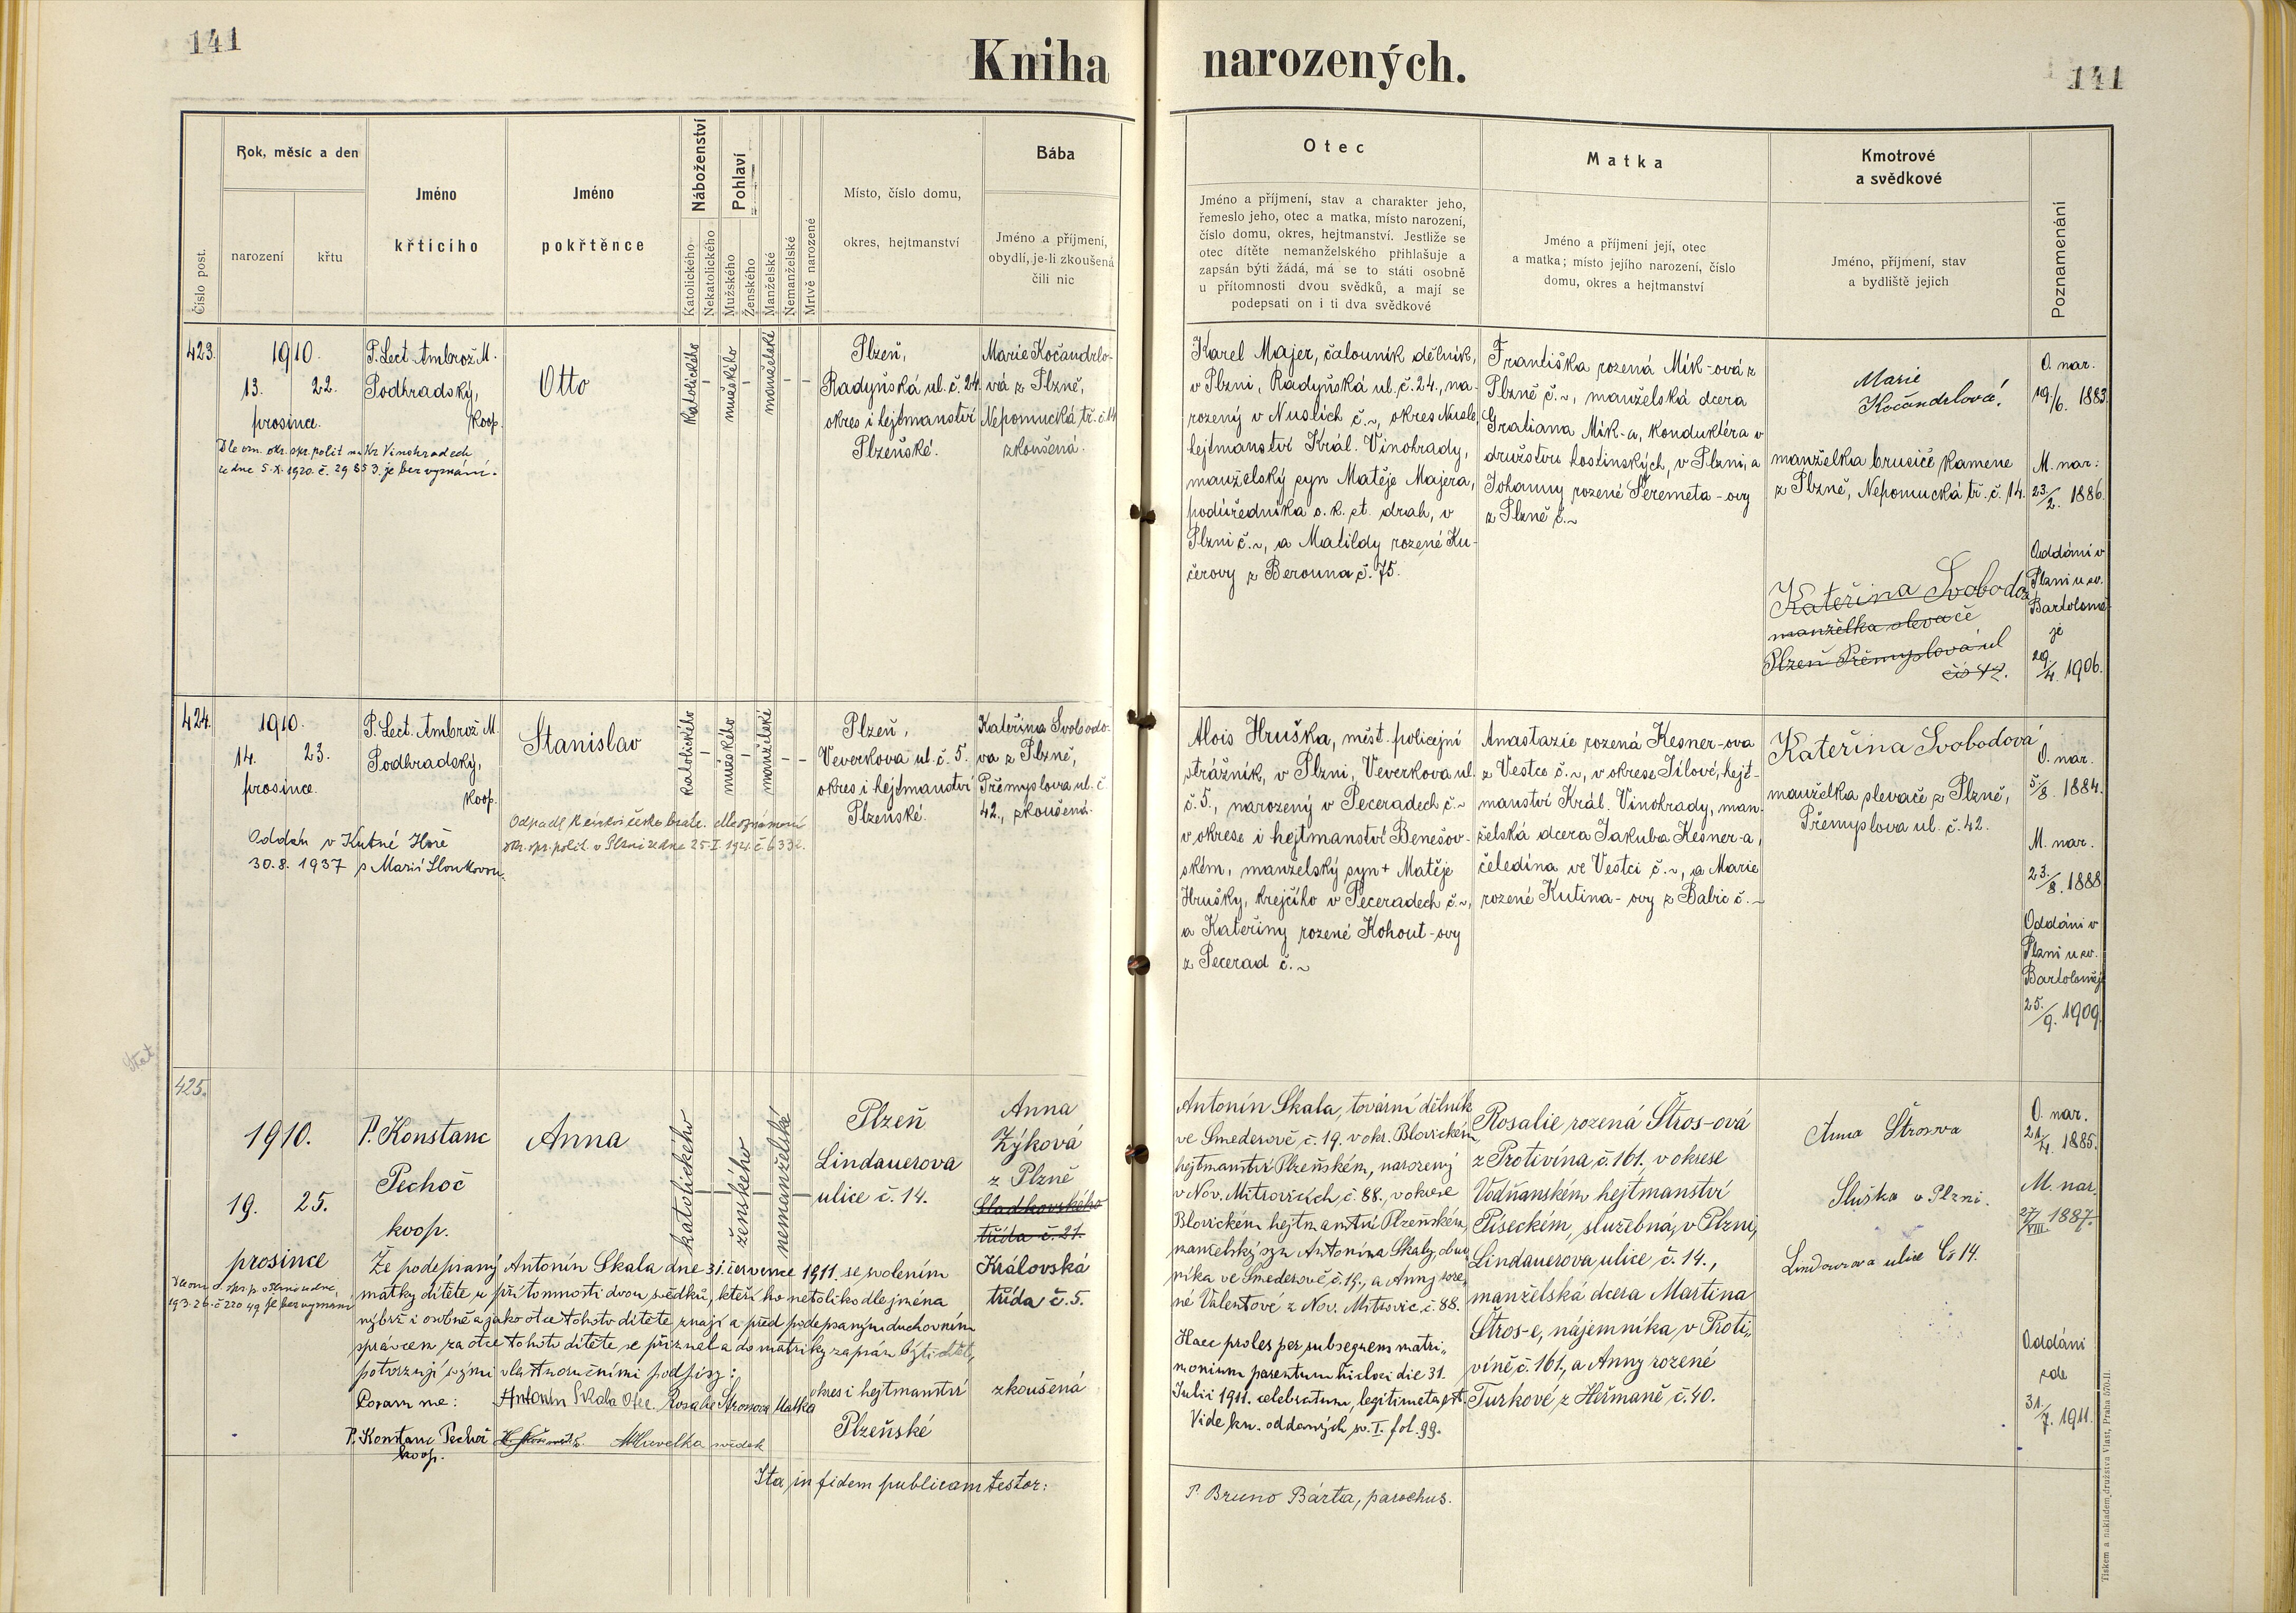 141
Kniha narozených.
141
Číslo post.
Rok, měsíc a den
narození
křtu
Jméno
křticího
Jméno
pokřtěnce
Náboženství
Katolického
Nekatolického
Pohlaví
Mužského
Ženského
Manželské
Nemanželské
Mrtvě narozené
Místo, číslo domu,
okres, hejtmanství
Bába
Jméno a příjmení,
obydlí, je-li zkoušená
čili nic
Otec
Jméno a příjmení, stav a charakter jeho,
řemeslo jeho, otec a matka, místo narození,
číslo domu, okres, hejtmanství. Jestliže se
otec dítěte nemanželského přihlašuje a
zapsán býti žádá, má se to státi osobně
u přítomnosti dvou svědků, a mají se
podepsati on i ti dva svědkové
Matka
Jméno a příjmení její, otec
a matka; místo jejího narození, číslo
domu, okres a hejtmanství
Kmotrové
a svědkové
Jméno, příjmení, stav
a bydliště jejich
Poznamenání
423.
1910.
13. 22.
prosince.
Dle ozn. okr. spr. polit na Kr Vinohradech
ze dne 5.X.1920. č. 29853. je bez vyznání.
P. Lect. Ambrož M.
Podhradský,
koop.
Otto
katolického
mužského
manželské
Plzeň,
Radyňská ul. č. 24.
okres i hejtmanství
Plzeňské.
Marie Kočandrlo-
vá z Plzně,
Nepomucká tř. č. 14
zkoušená.
Karel Majer, čalouník dělník,
v Plzni, Radyňská ul. č. 24., na-
rozený v Nuslích č. ~, okres Nusle,
hejtmanství Král. Vinohrady,
manželský syn Matěje Majera,
podúředníka c. k. st. drah, v
Plzni č. ~, a Matildy rozené Ku-
čerovy z Berouna č. 75.
Františka rozená Mík-ová z
Plzně č. ~, manželská dcera
Gratiana Mík-a, konduktéra v
družstvu hostinských, v Plzni, a
Johanny rozené Šeremeta-ovy
z Plzně č. ~
Marie
Kočandrlová,
manželka brusiče kamene
z Plzně, Nepomucká tř. č. 14.
Kateřina Svobodo
manželka slevače
Plzeň Přemyslová ul
čís 42.
O. nar.
19/6. 1883.
M. nar:
23/2. 1886.
Oddáni v
Plzni u sv.
Bartolomě-
je
29/4. 1906.
424.
1910.
14. 23.
prosince.
Oddán v Kutné Hoře
30.8. 1937 s Marií Sloukovou.
P. Lect. Ambrož M.
Podhradský,
koop.
Stanislav
Odpadl k církvi česko bratr. dle oznámení
okr. spr. polit. v Plzni ze dne 25.I. 1921. č 6332.
katolického
mužského
manželské
Plzeň,
Veverkova ul. č. 5.
okres i hejtmanství
Plzeňské.
Kateřina Svobodo-
va z Plzně,
Přemyslova ul. č.
42., zkoušená.
Alois Hruška, měst. policejní
strážník, v Plzni, Veverkova ul.
č. 5., narozený v Peceradech č. ~
v okrese i hejtmanství Benešov-
ském, manželský syn + Matěje
Hrušky, krejčího v Peceradech č. ~,
a Kateřiny rozené Kohout-ovy
z Pecerad č. ~
Anastazie rozená Kesner-ova
z Vestce č. ~, v okrese Jílové, hejt-
manství Král. Vinohrady, man-
želská dcera Jakuba Kesner-a,
čeledína ve Vestci č. ~, a Marie
rozené Kutina-ovy z Babic č. ~
Kateřina Svobodová
manželka slevače z Plzně,
Přemyslova ul. č. 42.
O. nar.
5/8. 1884.
M. nar.
23./8. 1888
Oddáni v
Plzni u sv.
Bartoloměje
25./9. 1909.
425.
1910.
19. 25.
prosince
P. Konstanc
Pechoč
koop.
Anna
katolického
ženského
nemanželské
Plzeň
Lindauerova
ulice č. 14.
okres i hejtmanství
Plzeňské
Anna
Zýková
z Plzně
Sladkovského
třída č. 21.
Královská
třída č. 5.
zkoušená
Že podepsaný Antonín Skala dne 31. července 1911. se svolením
matky dítěte u přítomnosti dvou svědků, kteří ho netoliko dle jména
nýbrž i osobně a jako otce tohoto dítěte znají a před podepsaným duchovním
správcem za otce tohoto dítěte se přiznal a do matriky zapsán býti chtěl,
potvrzují svými vlastnoručními podpisy:
Coram me: Antonín Skala Otec Rosalie Štrosova Matka
P. Konstanc Pechoč
koop.
Havelka svědek
Antonín Skala, tovární dělník
ve Smederově č. 19. v okr. Blovickém
hejtmanství Plzeňském, narozený
v Nov. Mitrovicích č. 88., v okrese
Blovickém hejtmanství Plzeňském,
manželský syn Antonína Skaly, obuv
níka ve Smederově č. 19., a Anny roze,
né Valentové z Nov. Mitrovic č. 88.
Haec proles per subsequens matri,,
monium parentum hic loci die 31.
Julii 1911. celebratum, legitimata est.
Vide kn. oddaných sv. I. fol. 99.
Rosalie rozená Štros-ová
z Protivína č. 161. v okrese
Vodňanském hejtmanství
Píseckém, služebná, v Plzni,
Lindauerova ulice č. 14.,
manželská dcera Martina
Štros-e, nájemníka v Proti,,
víně č. 161., a Anny rozené
Turkové z Heřmaně č. 40.
Anna Štrosova
Služka v Plzni.
Lindaurova ulice Čs 14.
O. nar.
21/4. 1885.
M. nar.
27/VIII. 1887.
Oddáni
zde
31./7. 1911.
Ita in fidem publicam testor:
P. Bruno Bárta, parochus.
Tiskem a nákladem družstva Vlast, Praha 570-II.